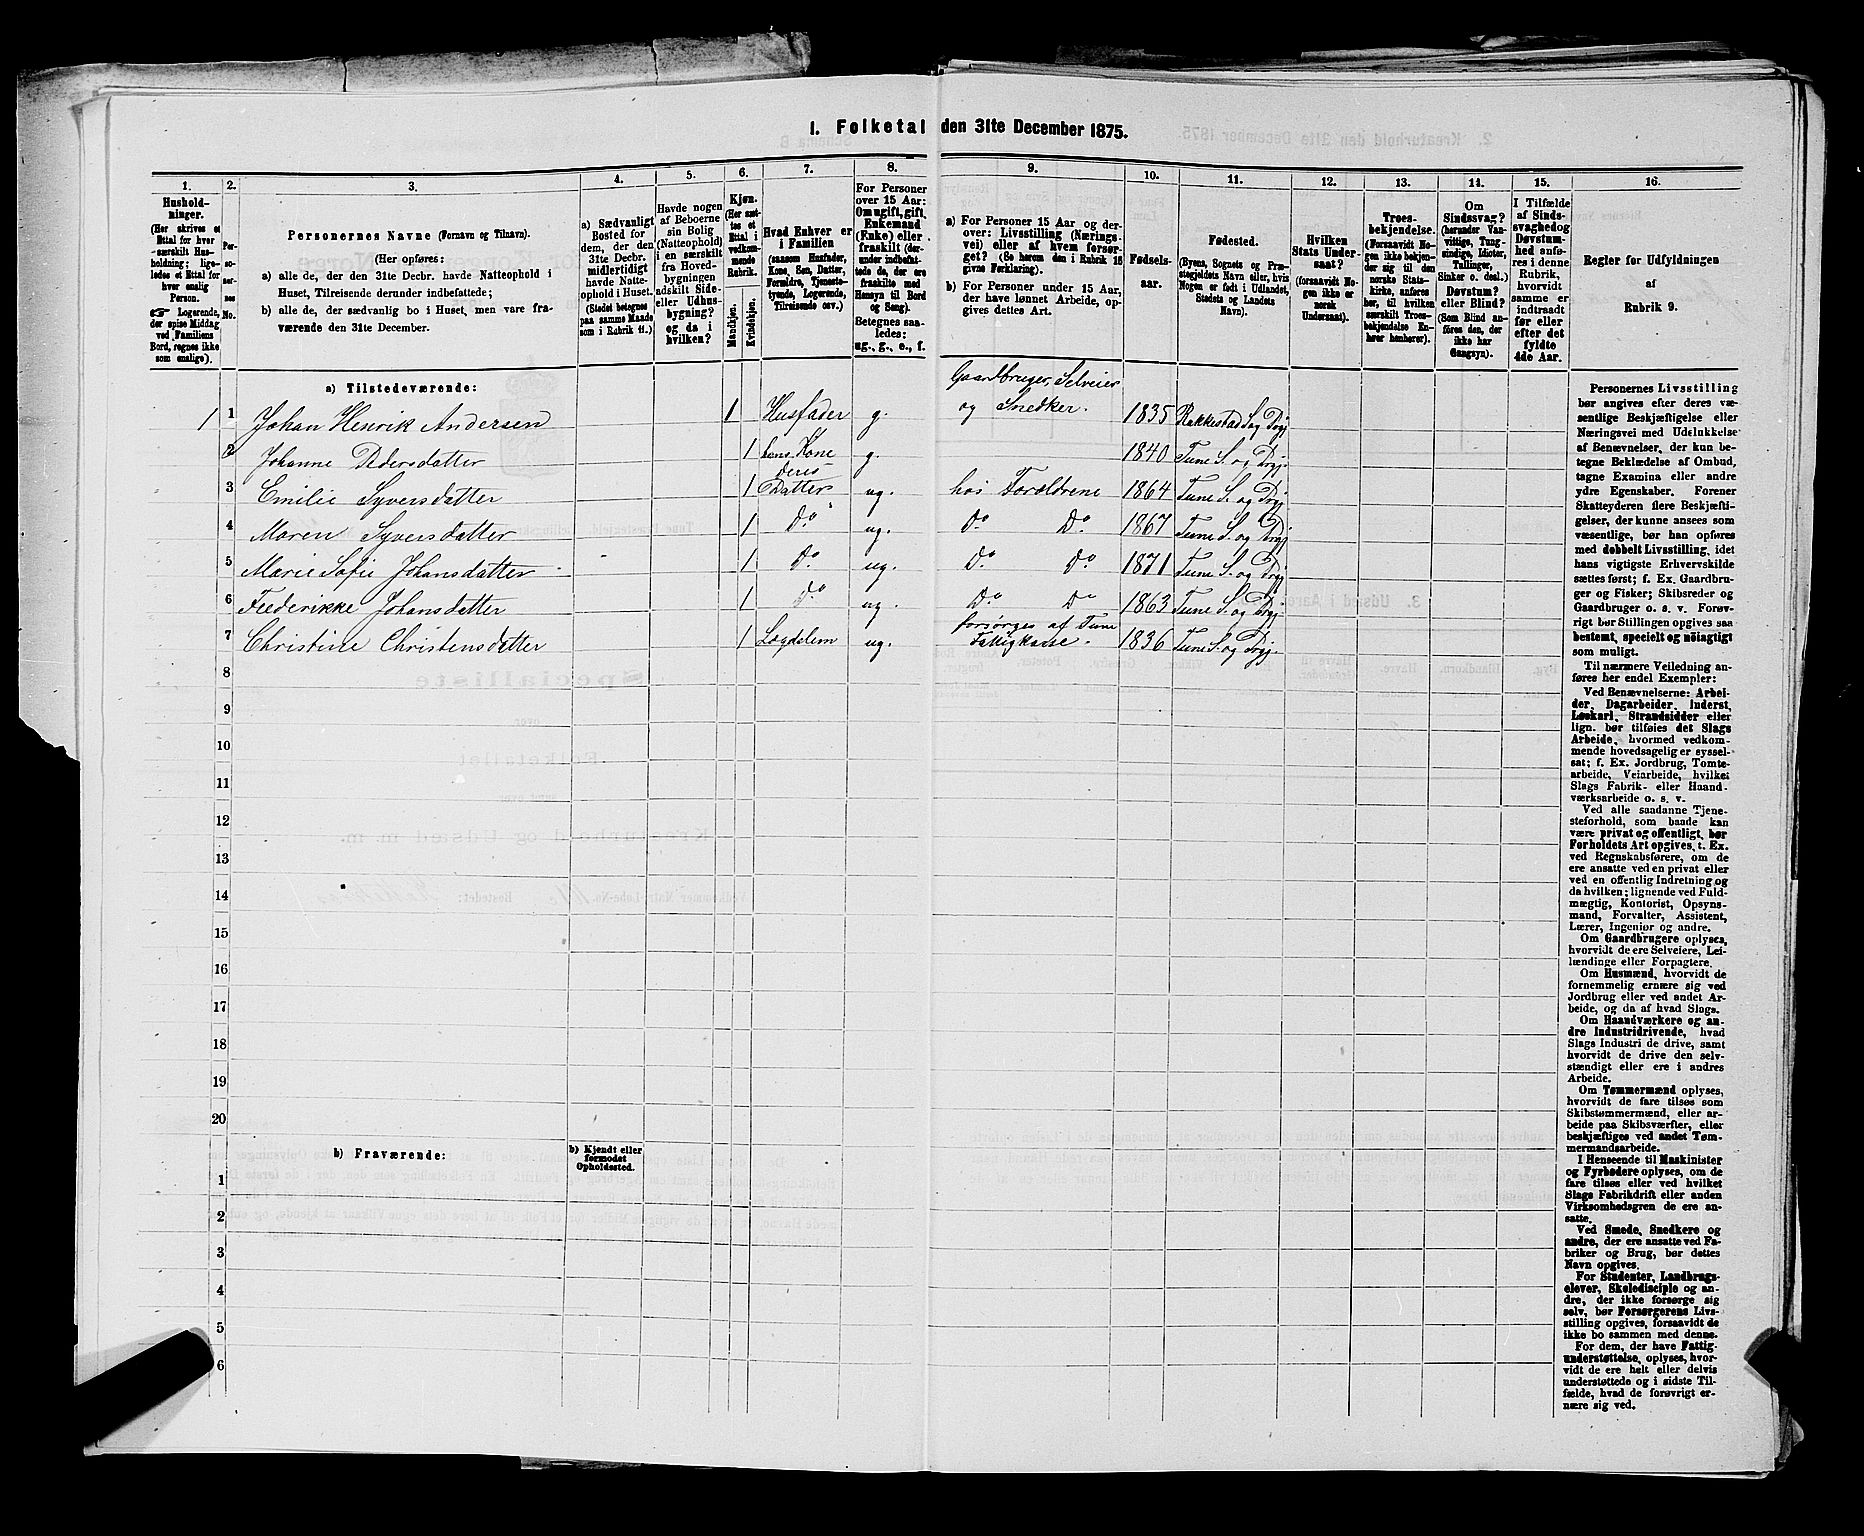 1. Folketal den 31te December 1875.
1.
Hushold-
ninger.
(Her skrives et
Ettal for hver
særskilt Hus-
holdning; lige-
ledes et Ettal for
hver enslig
Person.
☞ Logerende,
der spise Middag
ved Familiens
Bord, regnes ikke
som enslige).
2.
Per-
so-
ner-
nes
No.
3.
Personernes Navne (Fornavn og Tilnavn).
(Her opføres:
a) alle de, der den 31te Decbr. havde Natteophold i
Huset, Tilreisende derunder indbefattede;
b) alle de, der sædvanlig bo i Huset, men vare fra-
værende den 31te December.
4.
a) Sædvanligt
Bosted for
dem, der den
31te Decbr.
midlertidigt
havde Natte-
ophold i Huset.
(Stedet betegnes
paa samme Maade
som i Rubrik 11.)
5.
Havde nogen
af Beboerne
sin Bolig
(Natteophold)
i en særskilt
fra Hoved-
bygningen
adskilt Side-
eller Udhus-
bygning?
og da i
hvilken?
6.
Kjøn.
(Her sæt-
tes et
Ettal i
vedkom-
mende
Rubrik.
Mandkjøn.
Kvindekjøn.
7.
Hvad Enhver er
i Familien
(saasom Husfader,
Kone, Søn, Datter,
Forældre, Tjeneste-
tyende, Logerende,
Tilreisende osv.)
8.
For Personer
over 15 Aar:
Om ugift, gift,
Enkemand
(Enke) eller
fraskilt (der-
under indbefat-
tede de, der ere
fraskilte med
Hensyn til Bord
og Seng).
Betegnes saa-
ledes:
ug., g., e., f.
9.
a) For Personer 15 Aar og der-
over: Livsstilling (Nærings-
vei) eller af hvem forsør-
get? (Se herom den i Rubrik 16
givne Forklaring).
b) For Personer under 15 Aar,
der have lønnet Arbeide, op-
gives dettes Art.
10.
Fødsels-
aar.
11.
Fødested.
(Byens, Sognets og Præ-
stegjeldets Navn eller, hvis
Nogen er født i Udlandet,
Stedets og Landets
Navn).
12.
Hvilken
Stats Under-
saat?
(forsaavidt No-
gen ikke er
norsk
Undersaat).
13.
Troes-
bekjendelse.
(Forsaavidt No-
gen ikke bekjen-
der sig til den
norske Stats-
kirke, anføres
her, til hvilken
særskilt Troes-
bekjendelse En-
hver henhører).
14.
Om
Sindssvag?
(herunder Van-
vittige, Tung-
sindige, Idioter,
Tullinger,
Sinker o. desl.)
Døvstum?
eller Blind?
(Som Blind an-
føres den, der
ikke har
Gangsyn).
15.
I Tilfælde
af Sinds-
svaghed og
Døvstum-
hed anfø-
res i denne
Rubrik,
hvorvidt
samme er
indtraadt
før eller
efter det
fyldte
4de Aar.
16.
Regler for Udfyldningen
af
Rubrik 9.
a) Tilstedeværende:
Gaardbruger, Selveier
1 1 Johan Henrik Andersen 1 Husfader g. og Snedker. 1835 Rakkestad S og Prgj
2 Johanne Pedersdatter 1 hans Kone g. 1840 Tune S. og Prgj.
deres
3 Emilie Syversdatter 1 Datter ug. hos Forældrene 1864 Tune S. og Prgj
4 Maren Syversdatter 1 Do ug. Do Do 1867 Tune S. og Prgj.
5 Marie Sofie Johansdatter 1 Do ug. Do Do 1871 Tune S. og Prgj
6 Frederikke Johansdatter 1 Do ug. Do Do 1863 Tune S. og Prgj.
forsørges af Tune
7 Christine Christensdatter 1 Lægdslem ug. Fattigkasse. 1836 Tune S. og Prgj.
8
9
10
11
12
13
14
15
16
17
18
19
20
b) Fraværende:
b) Kjendt eller
formodet
Opholdssted.
1
2
3
4
5
6
Personernes Livsstilling
bør angives efter deres væ-
sentlige Beskjæftigelse eller
Næringsvei med Udelukkelse
af Benævnelser, der kun be-
tegne Beklædelse af Ombud,
tagne Examina eller andre
ydre Egenskaber. Forener
Skatteyderen flere Beskjæfti-
gelser, der kunne ansees som
væsentlige, bør han opføres
med dobbelt Livsstilling, idet
hans vigtigste Erhvervskilde
sættes først; f. Ex. Gaardbru-
ger og Fisker; Skibsreder og
Gaardbruger o. s. v. Forøv-
rigt bør Stillingen opgives saa
bestemt, specielt og nöiagtigt
som muligt.
Til nærmere Veiledning an-
føres her endel Exempler:
Ved Benævnelserne: Arbei-
der, Dagarbeider, Inderst,
Løskarl, Strandsidder eller
lign. bør tilføies det Slags
Arbeide, hvormed vedkom-
mende hovedsagelig er syssel-
sat; f. Ex. Jordbrug, Tomte-
arbeide, Veiarbeide, hvilket
Slags Fabrik- eller Haand-
værksarbeide o. s. v.
Ved alle saadanne Tjene-
steforhold, som baade kan
være privat og offentligt, bør
Forholdets Art opgives, t. Ex.
ved Regnskabsførere, om de
ere ansatte ved en privat eller
ved en offentlig Indretning og
da hvilken; lignende ved Fuld-
mægtig, Kontorist, Opsyns-
mand, Forvalter, Assistent,
Lærer, Ingeniør og andre.
Om Gaardbrugere oplyses,
hvorvidt de ere Selveiere, Lei-
lændinge eller Forpagtere.
Om Husmænd, hvorvidt de
fornemmelig ernære sig ved
Jordbrug eller ved andet Ar-
beide, og da af hvad Slags.
Om Haandværkere og an-
dre Industridrivende, hvad
Slags Industri de drive, samt
hvorvidt de drive den selv-
stændigt eller ere i andres
Arbeide.
Om Tømmermænd oplyses,
hvorvidt de fare tilsøs som
Skibstømmermænd, eller ar-
beide paa Skibsværfter, eller
beskjæftiges ved andet Tøm-
mermandsarbeide.
I Henseende til Maskinister
og Fyrbødere oplyses, om de
fare tilsøs eller ved hvilket
Slags Fabrikdrift eller anden
Virksomhedsgren de ere an-
satte.
Ved Smede, Snedkere og
andre, der ere ansatte ved Fa-
briker og Brug, bør dettes
Navn opgives.
For Studenter, Landbrugs-
elever, Skoledisciple og an-
dre, der ikke forsørge sig
selv, bør Forsørgerens Livs-
stilling opgives, forsaavidt de
ikke bo sammen med denne.
For dem, der have Fattig-
understøttelse, oplyses, hvor-
vidt de ere helt eller delvis
understøttede og i sidste Til-
fælde, hvad de forøvrigt er-
nære sig ved.